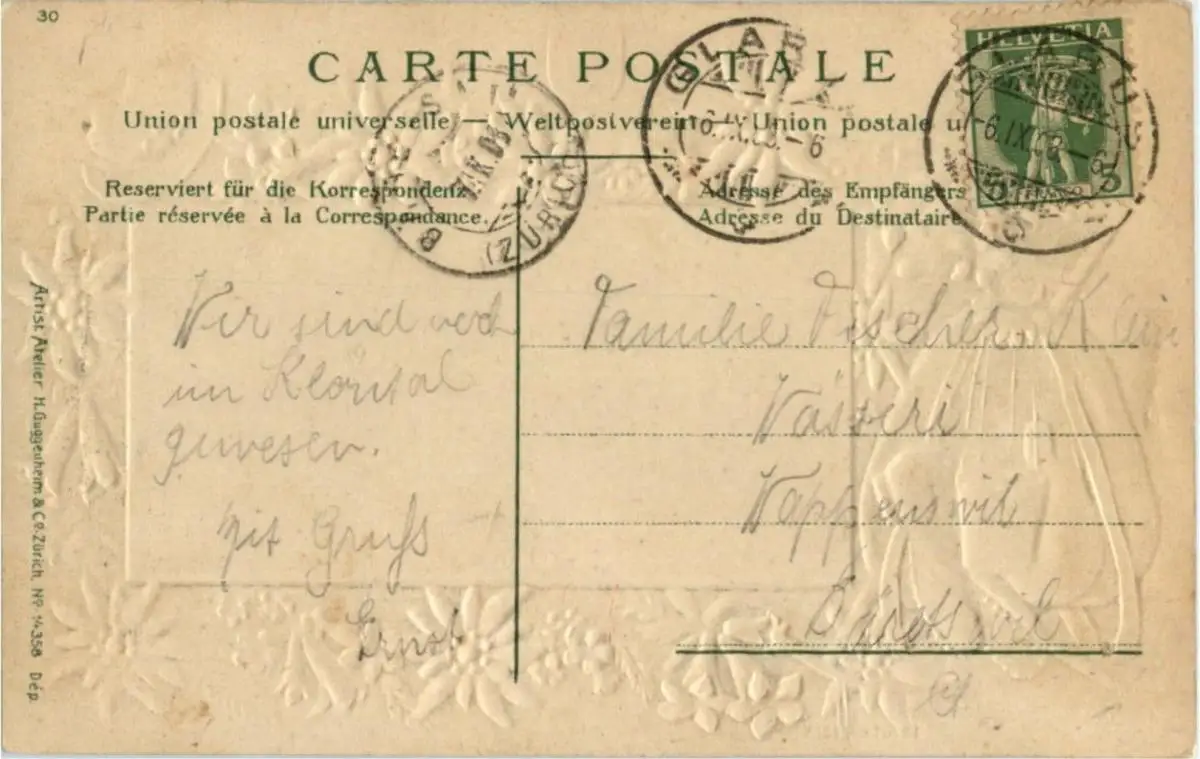 30
CARTE POSTALE
Union postale universelle — Weltpostverein — Union postale u
Reserviert für die Korrespondenz
Partie réservée à la Correspondance.
Adresse des Empfängers
Adresse du Destinataire
HELVETIA
5 FRANCO 5
GLARUS
-6.IX.09.-6
GLARUS
-6.IX.09.-8
(ZÜRICH)
Wir sind noch
im Klöntal
gewesen.
Mit Gruss
Ernst
Familie Fischer
Wappenswil
Bäretswil
Artist. Atelier H. Guggenheim & Co. Zürich. No. 14358 Dép.